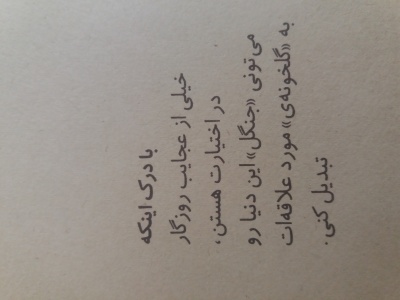 با درک اینکه
خیلی از عجایب روزگار
در اختیارت هستن،
می‌تونی «جنگل» این دنیا رو
به «گلخونه‌ی» مورد علاقه‌ات
تبدیل کنی.